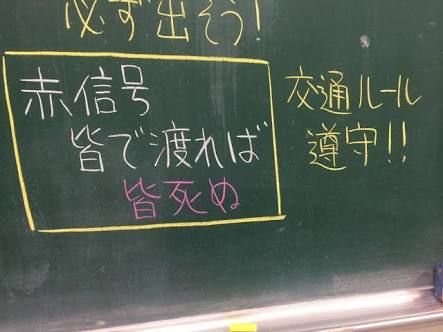 必ず出そう!
赤信号
皆で渡れば
皆死ぬ
交通ルール
遵守!!